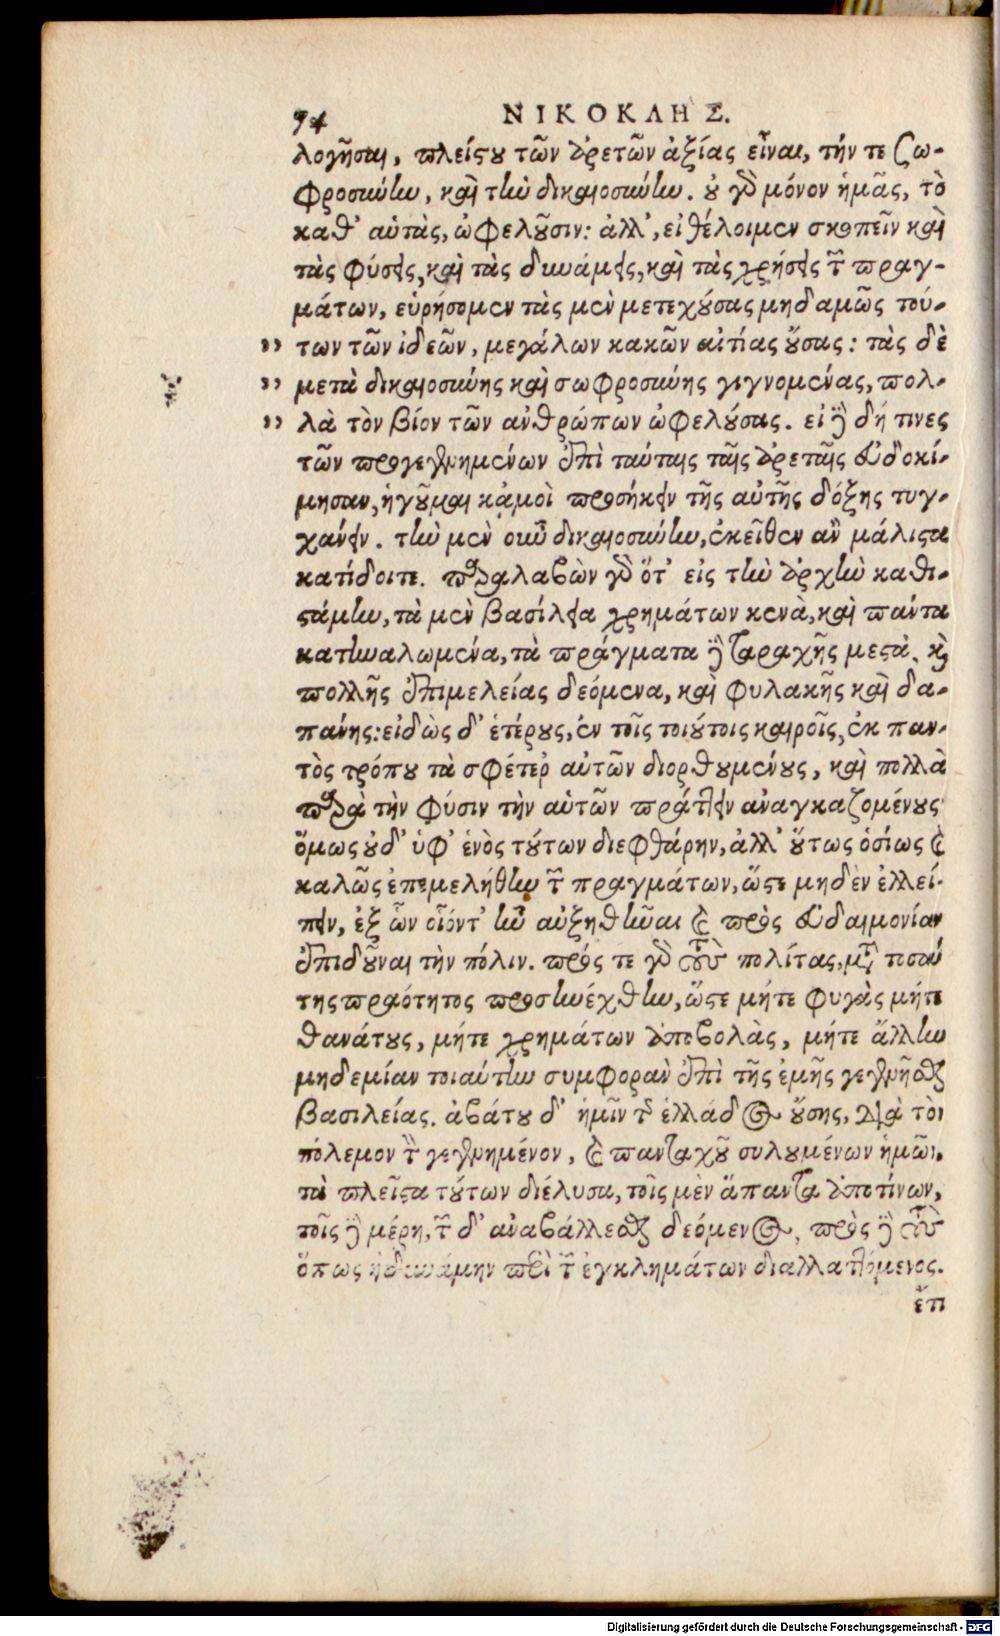 94 ΝΙΚΟΚΛΗΣ.
λογῆσαι, πλείςου τῶν ἀρετῶν ἀξίας εἶναι, τήν τε σω-
φροσύνην, καὶ τὴν δικαιοσύνην. οὐ γὰρ μόνον ἡμᾶς, τὸ
καθ' αὑτὰς, ὠφελοῦσιν: ἀλλ', εἰ θέλοιμεν σκοπεῖν καὶ
τὰς φύσεις, καὶ τὰς δυνάμεις, καὶ τὰς χρήσεις τῶν πραγ-
μάτων, εὑρήσομεν τὰς μὲν μετεχούσας μηδαμῶς τού-
,, των τῶν ἰδεῶν, μεγάλων κακῶν αἰτίας οὔσας: τὰς δὲ
,, μετὰ δικαιοσύνης καὶ σωφροσύνης γιγνομένας, πολ-
,, λὰ τὸν βίον τῶν ἀνθρώπων ὠφελούσας. εἰ δὲ δή τινες
τῶν προγεγενημένων ἐπὶ ταύταις ταῖς ἀρεταῖς εὐδοκί-
μησαν, ἡγοῦμαι κἀμοὶ προσήκειν τῆς αὐτῆς δόξης τυγ-
χάνειν. τὴν μὲν οὖν δικαιοσύνην, ἐκεῖθεν ἂν μάλιςα
κατίδοιτε. παραλαβὼν γὰρ ὅτ' εἰς τὴν ἀρχὴν καθι-
ςάμην, τὰ μὲν βασίλεια χρημάτων κενὰ, καὶ πάντα
κατηναλωμένα, τὰ πράγματα δὲ ταραχῆς μεςὰ, καὶ
πολλῆς ἐπιμελείας δεόμενα, καὶ φυλακῆς καὶ δα-
πάνης: εἰδὼς δ' ἑτέρους, ἐν τοῖς τοιούτοις καιροῖς, ἐκ παν-
τὸς τρόπου τὰ σφέτερ' αὐτῶν διορθουμένους, καὶ πολλὰ
παρὰ τὴν φύσιν τὴν αὑτῶν πράττειν ἀναγκαζομένους
ὅμως οὐδ' ὑφ' ἑνὸς τούτων διεφθάρην, ἀλλ' οὕτως ὁσίως καὶ
καλῶς ἐπεμελήθην τῶν πραγμάτων, ὥςε μηδὲν ἐλλεί-
πειν, ἐξ ὧν οἷόντ' ἦν αὐξηθῆναι καὶ πρὸς εὐδαιμονίαν
ἐπιδοῦναι τὴν πόλιν. πρός τε γὰρ τοὺς πολίτας, μετὰ τοσαύ
της πραότητος προσηνέχθην, ὥςε μήτε φυγὰς μήτε
θανάτους, μήτε χρημάτων ἀποβολὰς, μήτε ἄλλην
μηδεμίαν τοιαύτην συμφορὰν ἐπὶ τῆς ἐμῆς γεγενῆσθαι
βασιλείας. ἀβάτου δ' ἡμῖν τῆς ἑλλάδος οὔσης, διὰ τὸν
πόλεμον τὸν γεγενημένον, καὶ πανταχοῦ συλουμένων ἡμῶν,
τὰ πλεῖςα τούτων διέλυσα, τοῖς μὲν ἅπαντα ἀποτίνων,
τοῖς δὲ μέρη, τῶν δ' ἀναβάλλεσθαι δεόμενος, πρὸς δὲ τοὺς
ὅπως ἠδυνάμην περὶ τῶν ἐγκλημάτων διαλλαττόμενος.
ἔτι
Digitalisierung gefördert durch die Deutsche Forschungsgemeinschaft - DFG